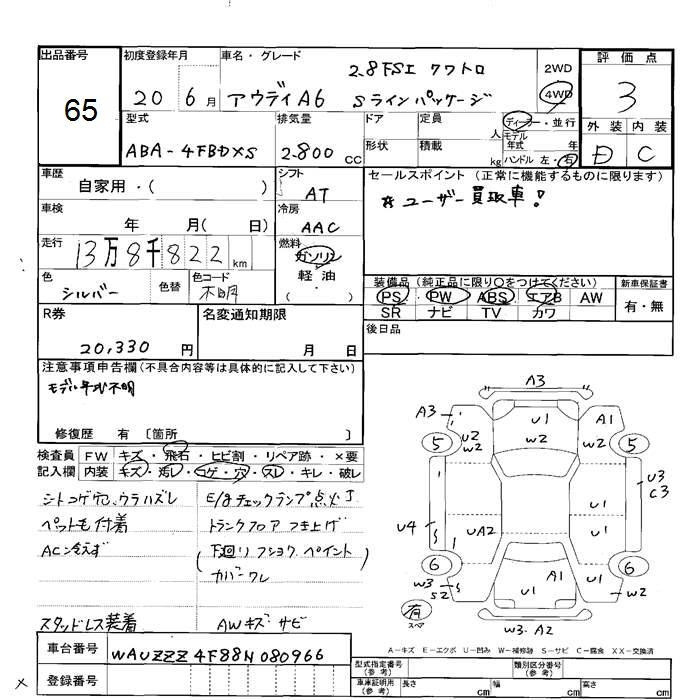 出品番号
65
初度登録年月
20 6月
車名・グレード
2.8FSI クワトロ
アウディA6 Sラインパッケージ
2WD
4WD
評価点
3
外装 内装
D C
型式
ABA-4FBDXS
排気量
2.800 CC
ドア
定員
人
形状
積載
kg
ディーラー・並行
モデル
年式 年
ハンドル 左・右
車歴
自家用・( )
シフト
AT
セールスポイント (正常に機能するものに限ります)
☆ユーザー買取車!
車検
年 月( 日)
冷房
AAC
走行
13万8千822km
燃料
ガソリン
軽・油
( )
色
シルバー
色替
色コード
不明
装備品 (純正品に限り〇をつけてください)
PS PW ABS エアB AW
SR ナビ TV カワ
新車保証書
有・無
R券
20,330 円
名変通知期限
月 日
後日品
注意事項申告欄(不具合内容等は具体的に記入して下さい)
モデル年式不明
修復歴 有 〔箇所 〕
検査員
記入欄
FW キズ・飛石・ヒビ割・リペア跡・×要
内装 キズ・汚レ・コゲ・穴・スレ・キレ・破レ
シトコゲ穴、ウラハズレ
ペット毛付着
AC冷えず
スタッドレス装着
E/gチェックランプ点灯
トランクフロアつき上げ
(下廻りフショク、ペイント)
カバーワレ
AWキズ・サビ
A3
A3
U1
W2
A1
5
U2
W2
W2
5
U3
C3
U1
U4
UA2
U1
6
W3
S2
A1
U1
U1
6
有
スペア
W3. A2
A-キズ E-エクボ U-凹み W-補修跡 S-サビ C-腐食 XX-交換済
車台番号
WAUZZZ4F88N080966
登録番号
型式指定番号
(参考)
類別区分番号
(参考)
車庫証明用
(参考)
長さ cm
幅 cm
高さ cm